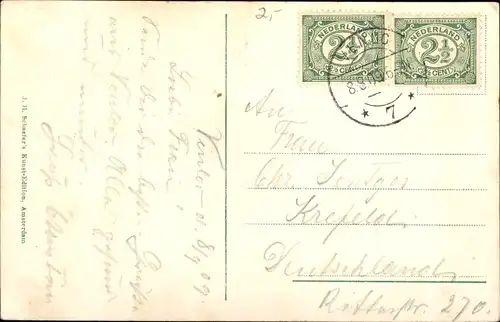 2,-
NEDERLAND
2½
2½ CENT
NEDERLAND
2½
2½ CENT
7
J. H. Schaefer's Kunst-Edition, Amsterdam
Venlo d. 8/9 09.
Liebe Frau,
Sende dir die besten Grüße
aus Venlo. Alle gesund
und munter.
Gruß
An
Frau
Chr. Jentges
Krefeld
Deutschland
Ritterstr. 270.